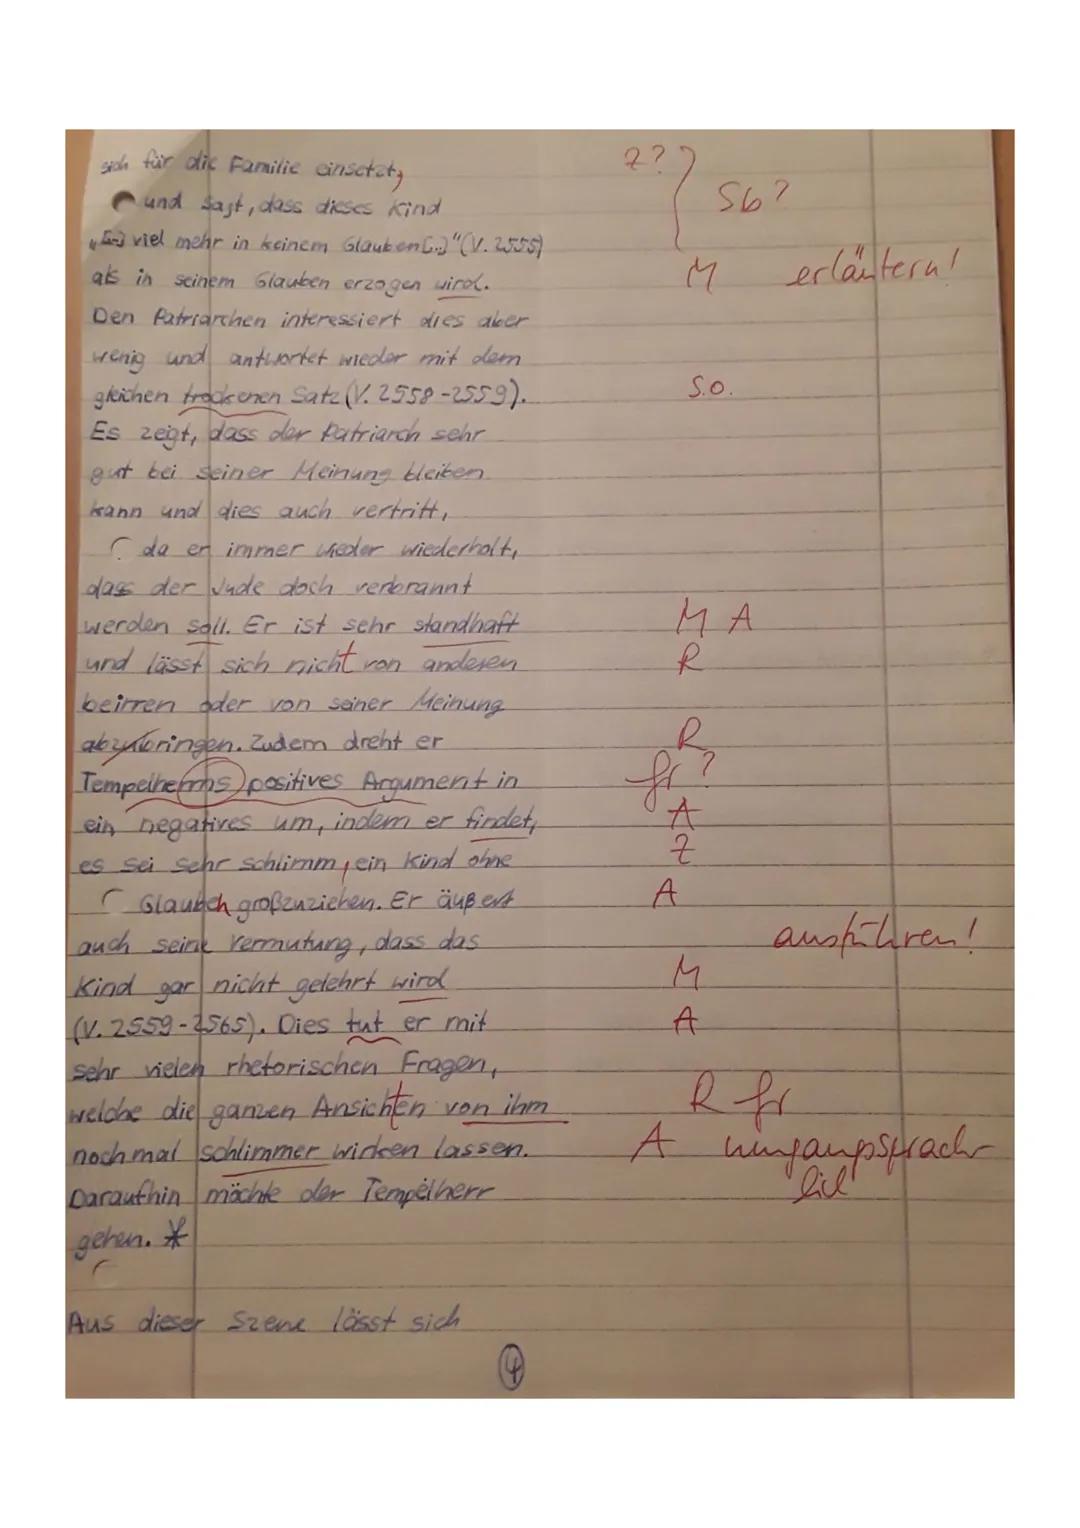 sich für die Familie einsetzt,
und sagt, dass dieses Kind
„[...] viel mehr in keinem Glauben [...]" (V. 2555)
als in seinem Glauben erzogen wird.
Den Patriarchen interessiert dies aber
wenig und antwortet wieder mit dem
gleichen trockenen Satz (V. 2558-2559).
Es zeigt, dass der Patriarch sehr
gut bei seiner Meinung bleiben
kann und dies auch vertritt,
da er immer wieder wiederholt,
dass der Jude doch verbrannt
werden soll. Er ist sehr standhaft
und lässt sich nicht von anderen
beirren oder von seiner Meinung
abzubringen. Zudem dreht er
Tempelherrns positives Argument in
ein negatives um, indem er findet,
es sei sehr schlimm, ein Kind ohne
Glauben großzuziehen. Er äußert
auch seine Vermutung, dass das
Kind gar nicht gelehrt wird
(V. 2559-2565). Dies tut er mit
sehr vielen rhetorischen Fragen,
welche die ganzen Ansichten von ihm
nochmal schlimmer wirken lassen.
Daraufhin möchte der Tempelherr
gehen. *
Aus dieser Szene lässt sich
4
Z?
Sb?
M erläutern!
s.o.
M A
R
R
gr?
A
Z
A
ausführen!
M
A
R gr
A umgangssprach-
lich